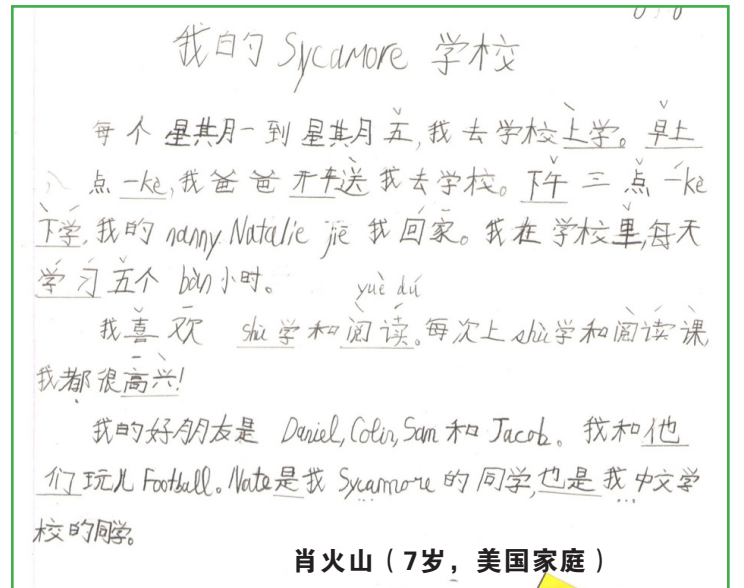 我的 Sycamore 学校
每个星其月一到星其月五,我去学校上学。早上
八点一kè,我爸爸开车送我去学校。下午三点一kè
下学,我的 nanny Natalie jiē 我回家。我在学校里,每天
学习五个 bàn 小时。
yuè dú
我喜欢 shù 学和阅读。每次上 shù 学和阅读课
我都很高兴!
我的好朋友是 Daniel, Colin, Sam 和 Jacob。我和他
们玩儿 Football。Nate 是我 Sycamore 的同学,也是我中文学
校的同学。
肖火山(7岁,美国家庭)